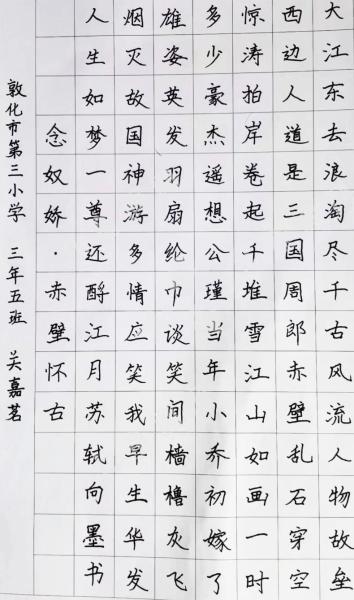 大江东去浪淘尽千古风流人物故垒
西边人道是三国周郎赤壁乱石穿空
惊涛拍岸卷起千堆雪江山如画一时
多少豪杰遥想公瑾当年小乔初嫁了
雄姿英发羽扇纶巾谈笑间樯橹灰飞
烟灭故国神游多情应笑我早生华发
人生如梦一尊还酹江月苏轼向墨书
念奴娇·赤壁怀古
敦化市第三小学 三年五班 关嘉茗